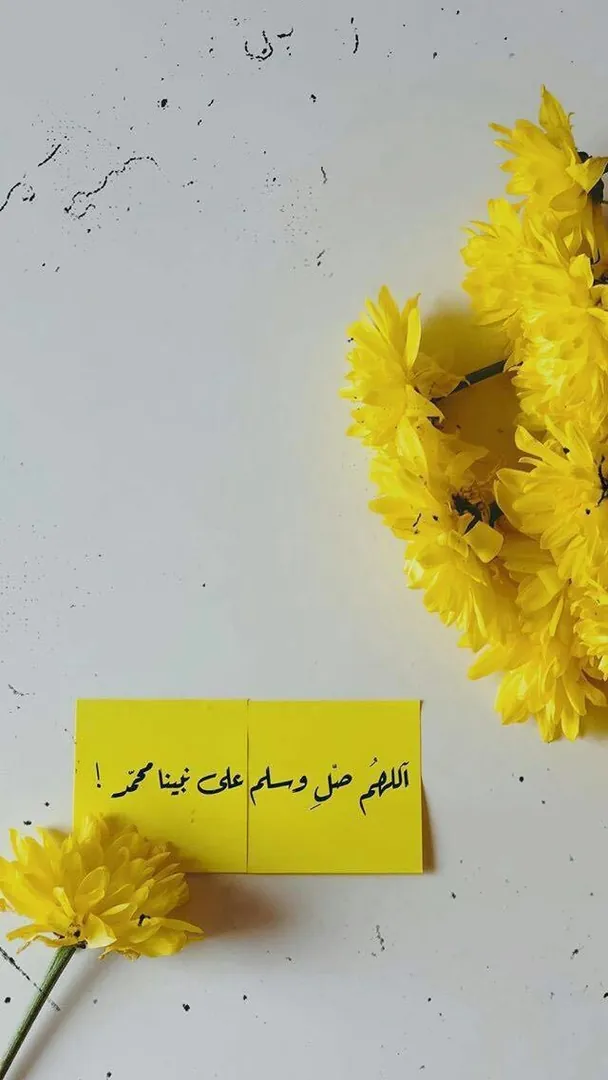 اللهمُ صّلِ وسلم على نبينا محمّد !